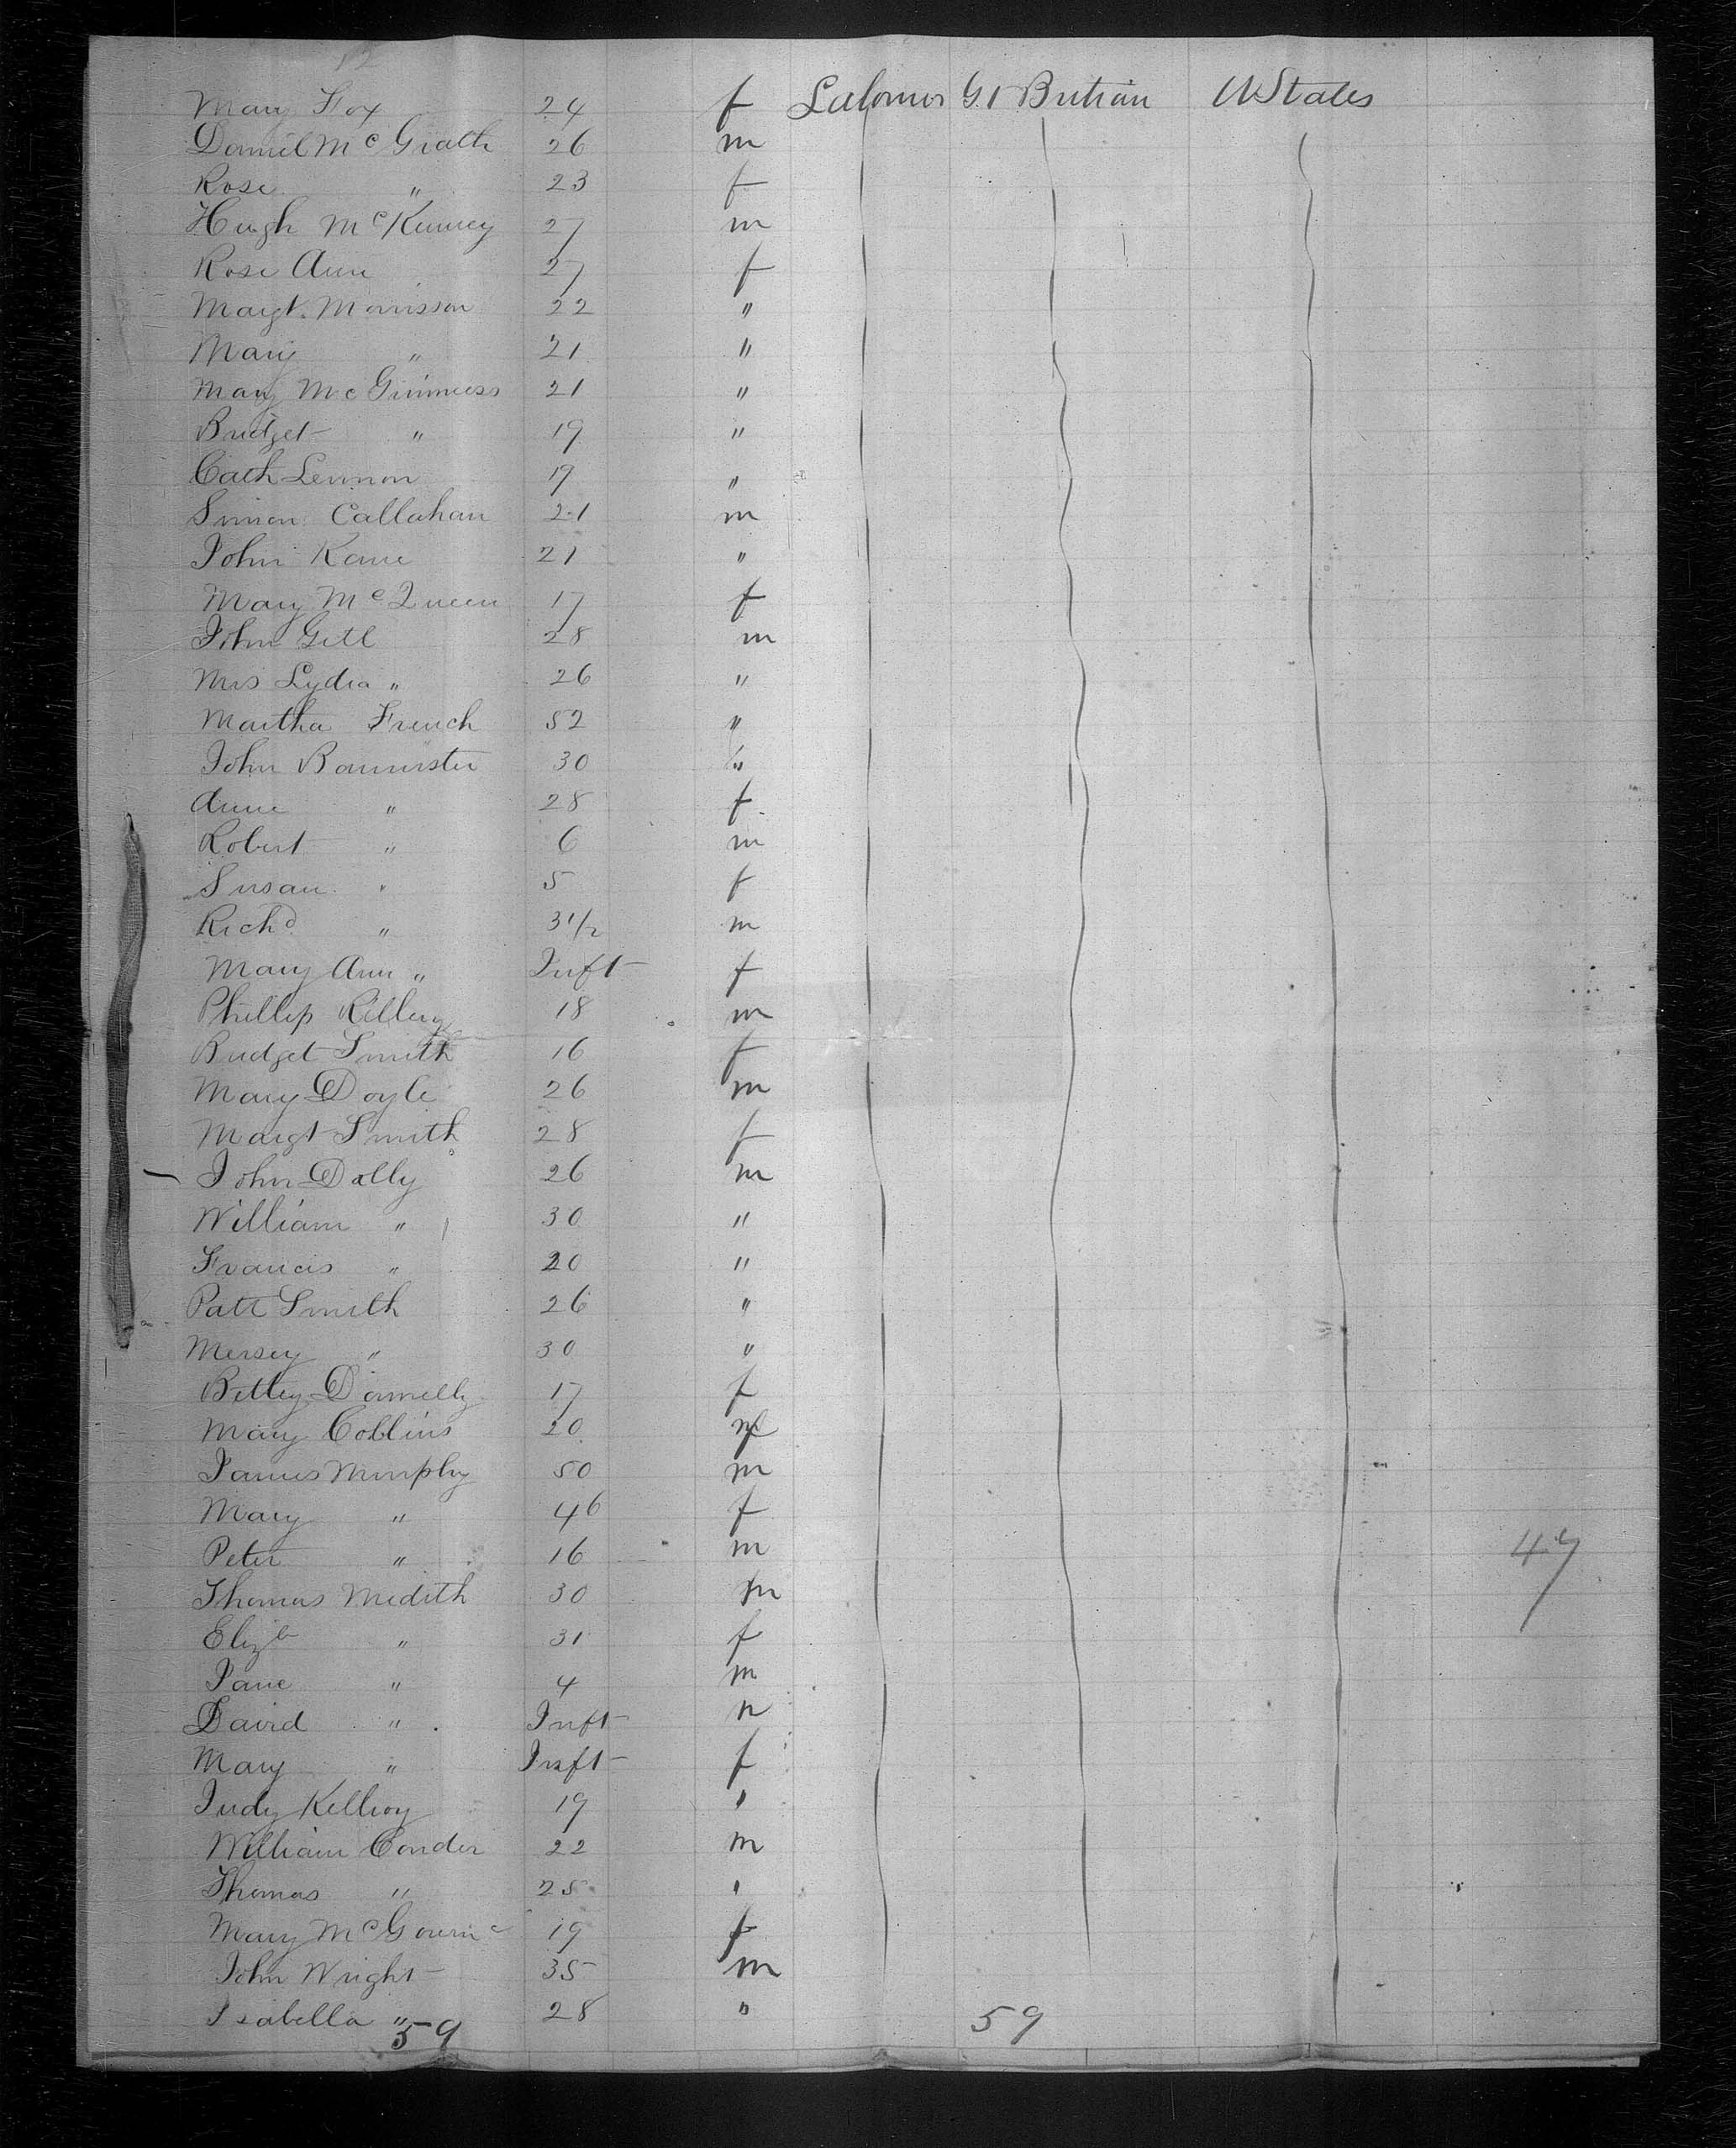 Mary Fox 24 f Labourer Gt Britain U States
Daniel Mc Grath 26 m
Rose " 23 f
Hugh McKinney 27 m
Rose Ann 27 f
Margt. Morrisson 22 "
Mary " 21 "
Mary Mc Guinness 21 "
Bridget " 19 "
Cath Lennon 19 "
Simon Callahan 21 m
John Kane 21 "
Mary McQueen 17 f
John Gill 28 m
Mrs Lydia " 26 "
Martha French 52 "
John Bannister 30 "
Anne " 28 f
Robert " 6 m
Susan " 5 f
Richd " 3 1/2 m
Mary Ann " Inft f
Phillip Rilley 18 m
Bridget Smith 16 f
Mary Doyle 26 m
Margt Smith 28 f
John Dolly 26 m
William " 30 "
Francis " 20 "
Patt Smith 26 "
Mersey " 30 "
Bettey Donnelly 17 f
Mary Collins 20 f
James Murphy 50 m
Mary " 46 f
Peter " 16 m
47
Thomas Medith 30 m
Elizb " 31 f
Jane " 4 m
David " Inft m
Mary " Inft f
Judy Kellroy 19 "
William Conder 22 m
Thomas " 25 "
Mary McGovern 19 f
John Wright 35 m
Isabella " 28 "
59 59